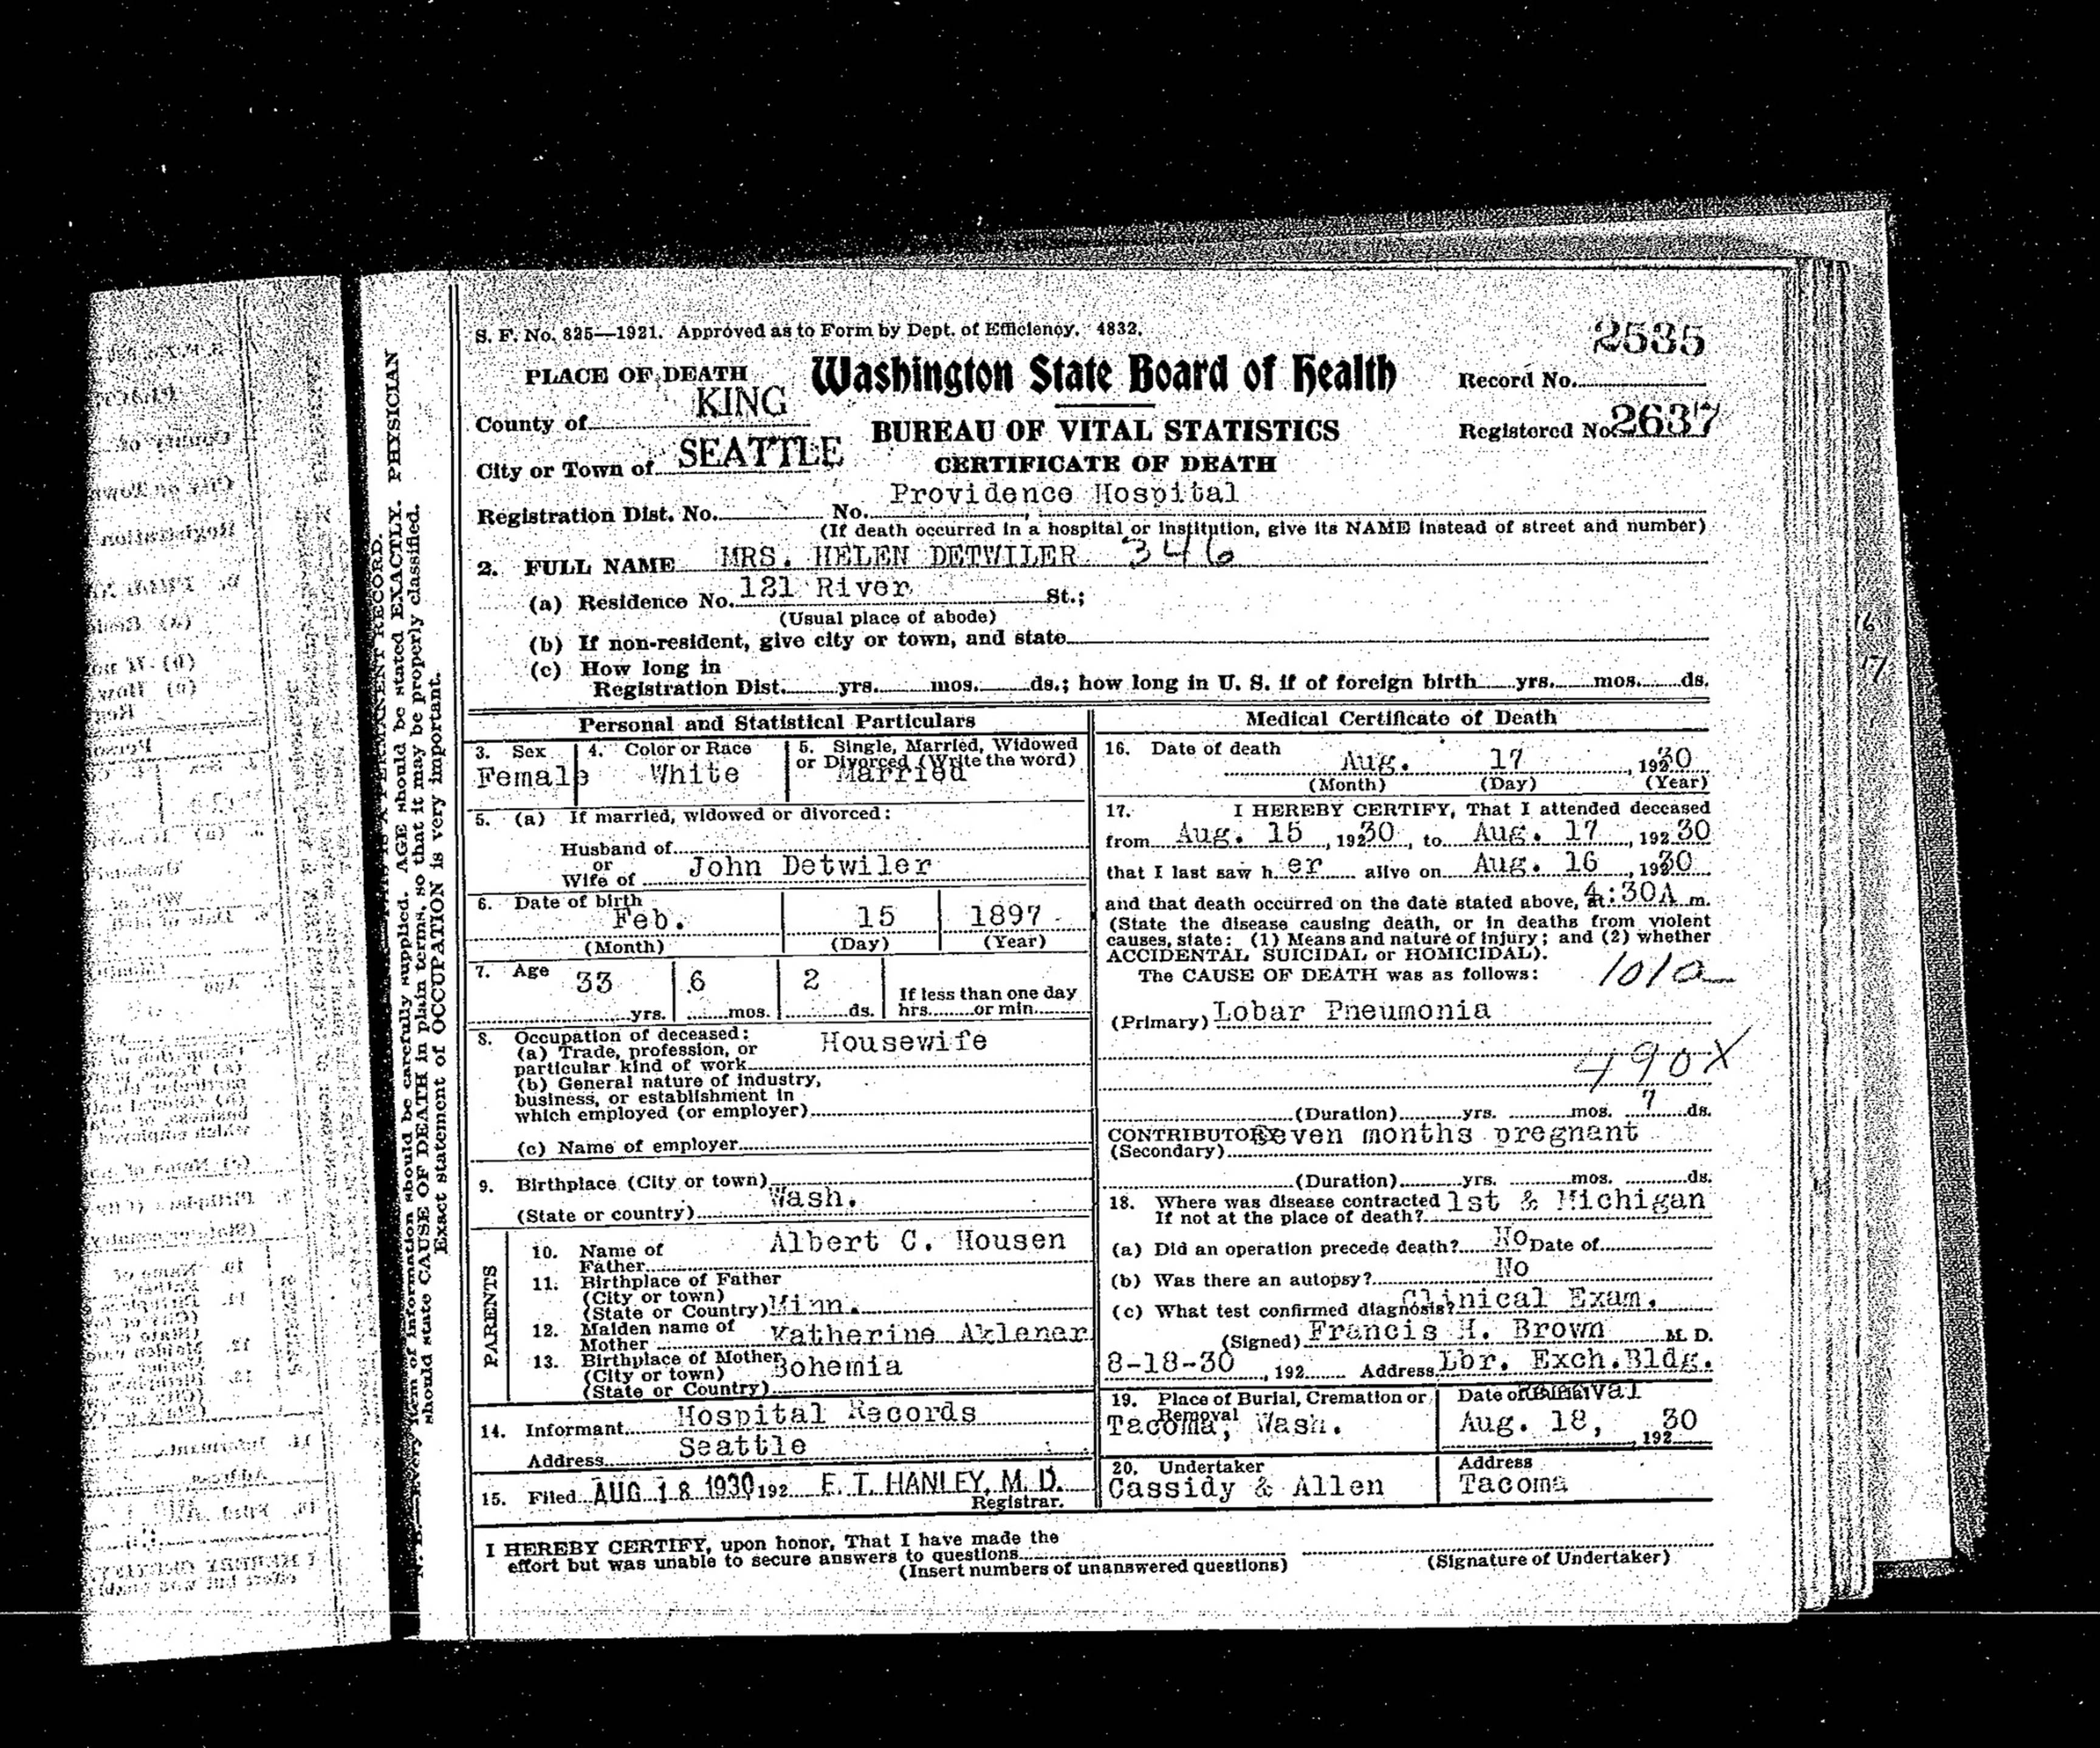 S. F. No. 825—1921. Approved as to Form by Dept. of Efficiency. 4832.
2535
PLACE OF DEATH
Washington State Board of Health
Record No.
County of KING
BUREAU OF VITAL STATISTICS
Registered No. 2637
City or Town of SEATTLE
CERTIFICATE OF DEATH
Registration Dist. No. No. Providence Hospital
(If death occurred in a hospital or institution, give its NAME instead of street and number)
2. FULL NAME MRS. HELEN DETWILER 346
(a) Residence No. 121 River St.;
(Usual place of abode)
(b) If non-resident, give city or town, and state
(c) How long in
Registration Dist. yrs. mos. ds.; how long in U. S. if of foreign birth yrs. mos. ds.
Personal and Statistical Particulars
3. Sex
Female
4. Color or Race
White
5. Single, Married, Widowed
or Divorced (Write the word)
Married
5. (a) If married, widowed or divorced:
Husband of
or
Wife of John Detwiler
6. Date of birth
Feb. 15 1897
(Month) (Day) (Year)
7. Age 33 yrs. 6 mos. 2 ds.
If less than one day
hrs. or min.
8. Occupation of deceased:
(a) Trade, profession, or
particular kind of work Housewife
(b) General nature of industry,
business, or establishment in
which employed (or employer)
(c) Name of employer
9. Birthplace (City or town)
(State or country) Wash.
PARENTS
10. Name of
Father Albert C. Housen
11. Birthplace of Father
(City or town)
(State or Country) Minn.
12. Maiden name of
Mother Katherine Aklener
13. Birthplace of Mother
(City or town) Bohemia
(State or Country)
14. Informant Hospital Records
Address Seattle
15. Filed AUG 18 1930 192 E. T. HANLEY, M. D.
Registrar.
Medical Certificate of Death
16. Date of death
Aug. 17, 1930
(Month) (Day) (Year)
17. I HEREBY CERTIFY, That I attended deceased
from Aug. 15, 19230, to Aug. 17, 19230
that I last saw her alive on Aug. 16, 1930
and that death occurred on the date stated above, at 4:30A m.
(State the disease causing death, or in deaths from violent
causes, state: (1) Means and nature of injury; and (2) whether
ACCIDENTAL SUICIDAL or HOMICIDAL).
The CAUSE OF DEATH was as follows: 101a
(Primary) Lobar Pneumonia
490X
(Duration) yrs. mos. 7 ds.
CONTRIBUTORY Seven months pregnant
(Secondary)
(Duration) yrs. mos. ds.
18. Where was disease contracted 1st & Michigan
If not at the place of death?
(a) Did an operation precede death? No Date of
(b) Was there an autopsy? No
(c) What test confirmed diagnosis? Clinical Exam.
(Signed) Francis H. Brown M. D.
8-18-30, 192 Address Lbr. Exch.Bldg.
19. Place of Burial, Cremation or
Removal
Tacoma, Wash.
Date of Burial
Aug. 18, 19230
20. Undertaker
Cassidy & Allen
Address
Tacoma
I HEREBY CERTIFY, upon honor, That I have made the
effort but was unable to secure answers to questions
(Insert numbers of unanswered questions)
(Signature of Undertaker)
Every item of information should be carefully supplied. AGE should be stated EXACTLY. PHYSICIAN
should state CAUSE OF DEATH in plain terms, so that it may be properly classified.
Exact statement of OCCUPATION is very important.
16
17